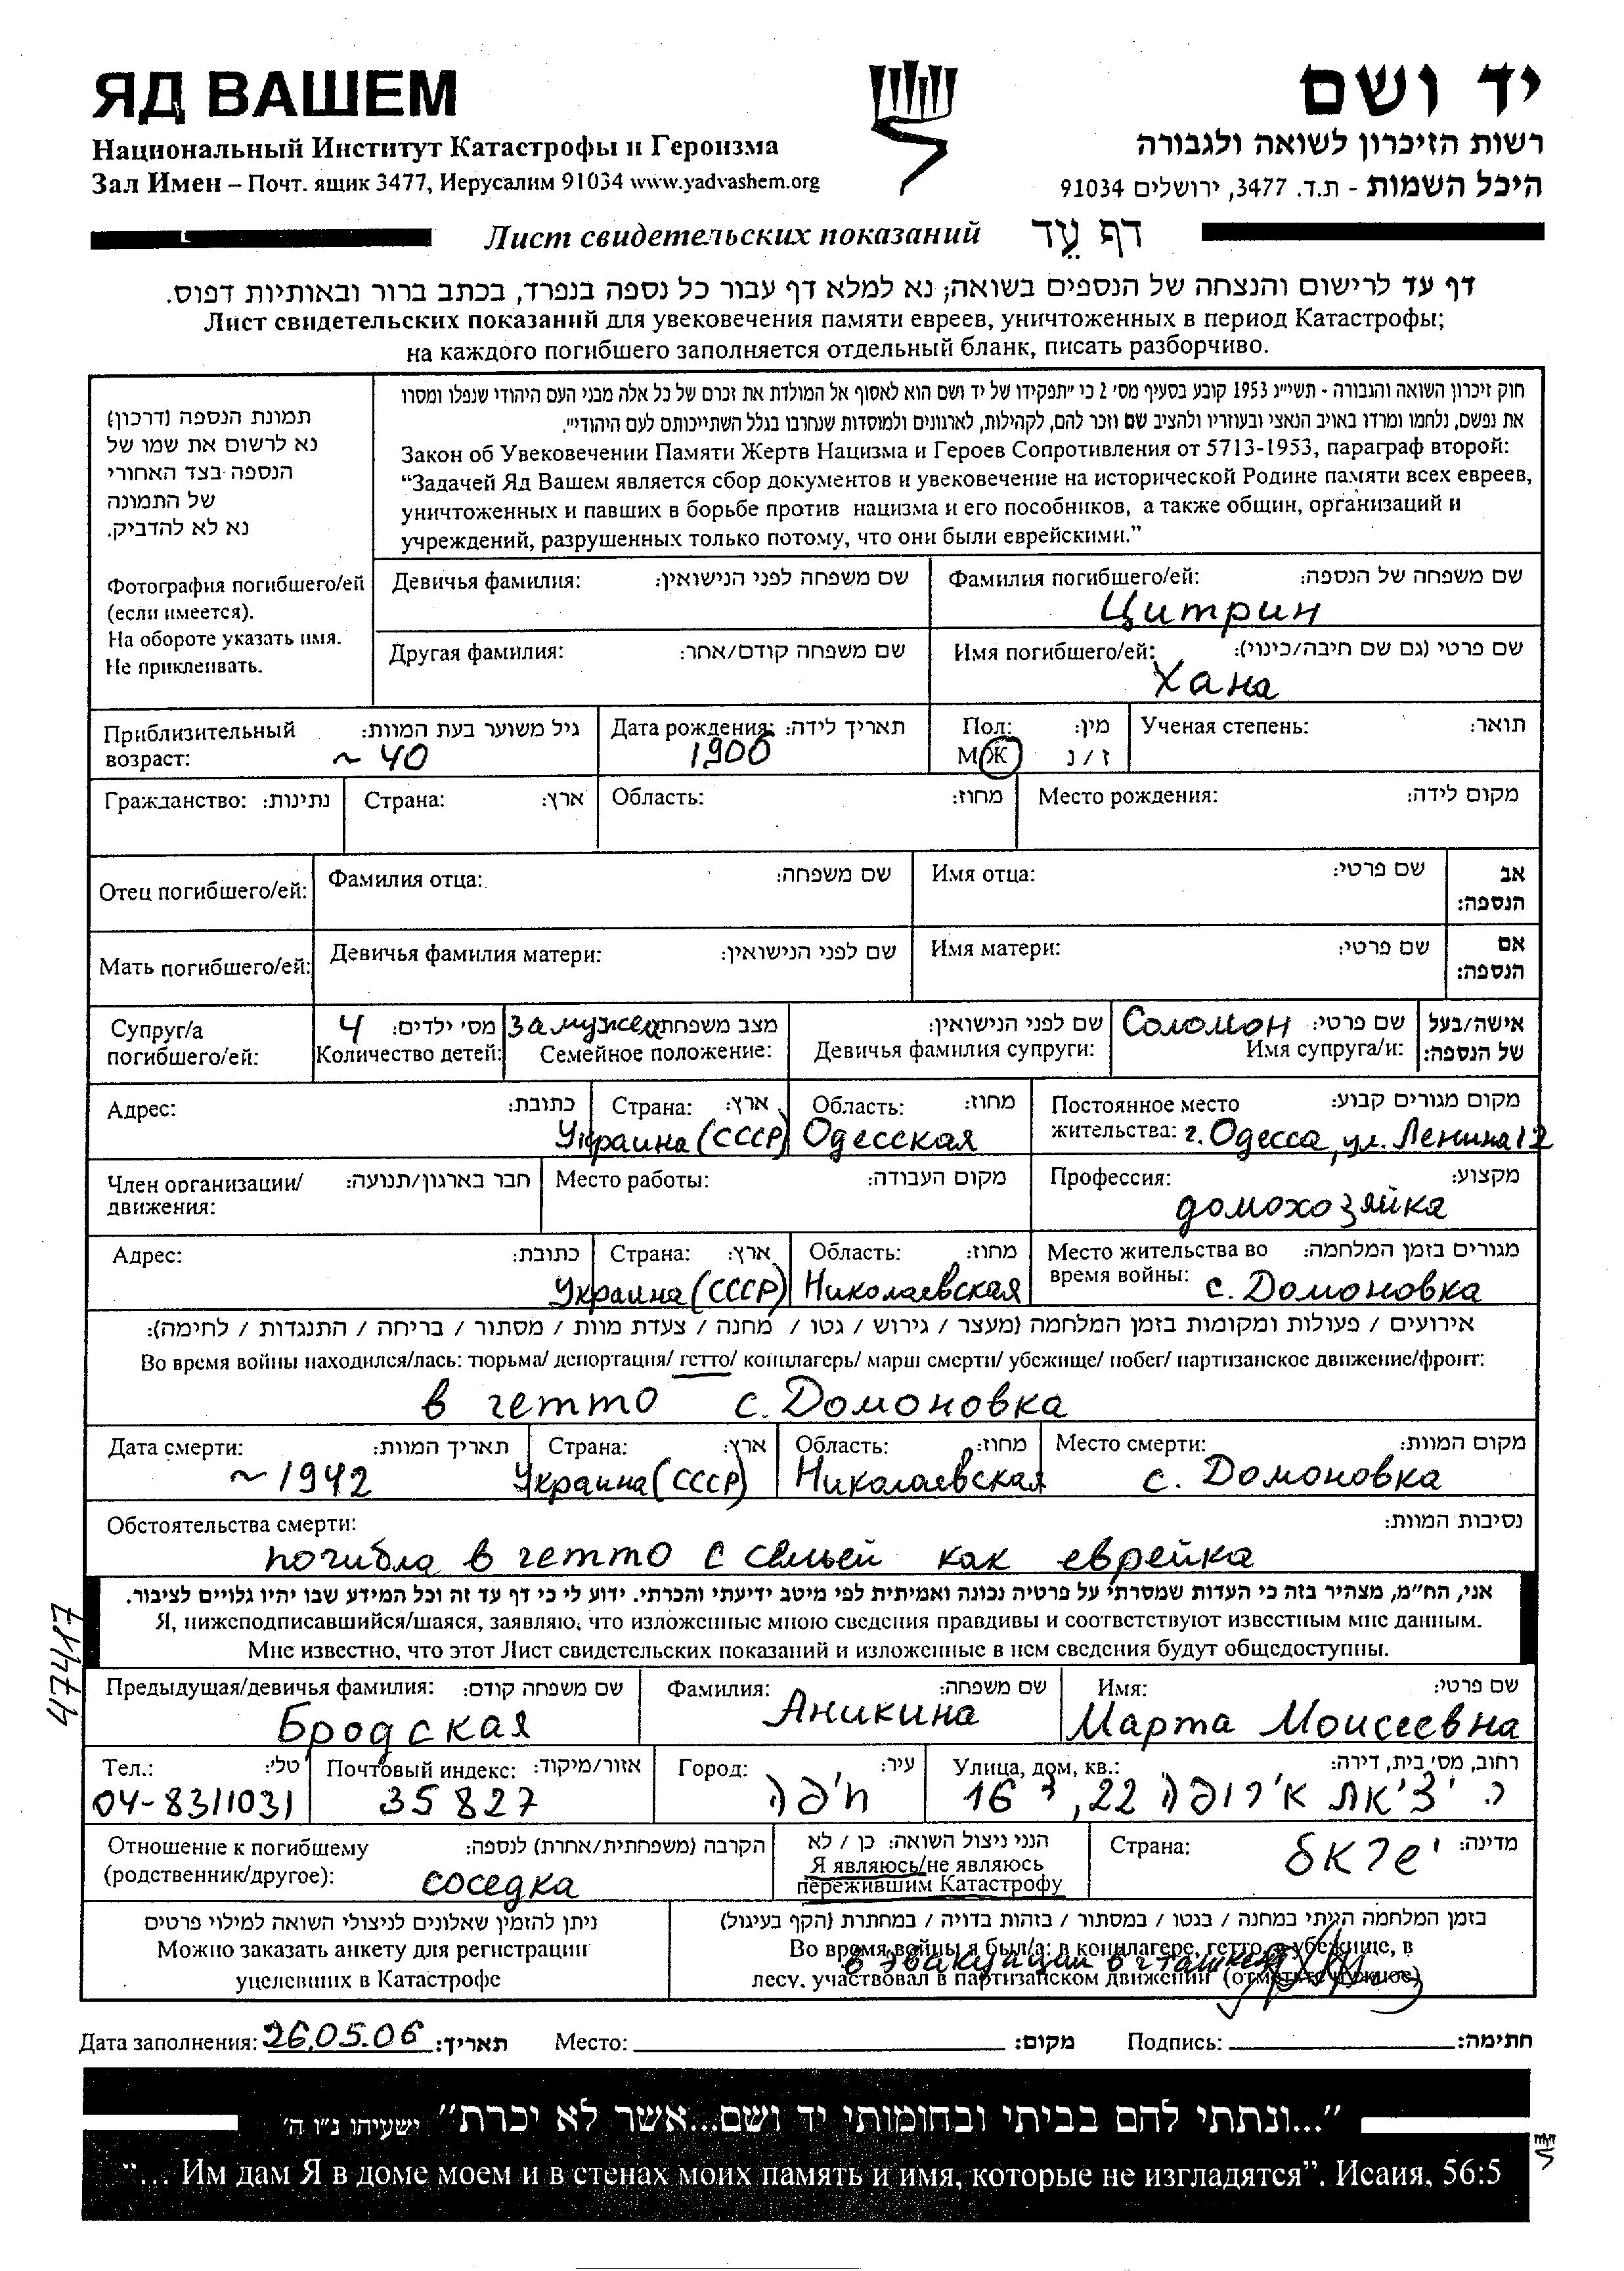 ЯД ВАШЕМ
יד ושם
Национальный Институт Катастрофы и Героизма
רשות הזיכרון לשואה ולגבורה
Зал Имен – Почт. ящик 3477, Иерусалим 91034 www.yadvashem.org
היכל השמות - ת.ד. 3477, ירושלים 91034
Лист свидетельских показаний דף עֵד
דף עד לרישום והנצחה של הנספים בשואה; נא למלא דף עבור כל נספה בנפרד, בכתב ברור ובאותיות דפוס.
Лист свидетельских показаний для увековечения памяти евреев, уничтоженных в период Катастрофы;
на каждого погибшего заполняется отдельный бланк, писать разборчиво.
תמונת הנספה (דרכון)
נא לרשום את שמו של
הנספה בצד האחורי
של התמונה
נא לא להדביק.
Фотография погибшего/ей
(если имеется).
На обороте указать имя.
Не приклеивать.
חוק זיכרון השואה והגבורה - תשי״ג 1953 קובע בסעיף מס׳ 2 כי ״תפקידו של יד ושם הוא לאסוף אל המולדת את זכרם של כל אלה מבני העם היהודי שנפלו ומסרו
את נפשם, נלחמו ומרדו באויב הנאצי ובעוזריו ולהציב שם וזכר להם, לקהילות, לארגונים ולמוסדות שנחרבו בגלל השתייכותם לעם היהודי״.
Закон об Увековечении Памяти Жертв Нацизма и Героев Сопротивления от 5713-1953, параграф второй:
“Задачей Яд Вашем является сбор документов и увековечение на исторической Родине памяти всех евреев,
уничтоженных и павших в борьбе против нацизма и его пособников, а также общин, организаций и
учреждений, разрушенных только потому, что они были еврейскими.”
Девичья фамилия: שם משפחה לפני הנישואין:
Фамилия погибшего/ей: שם משפחה של הנספה:
Цитрин
Другая фамилия: שם משפחה קודם/אחר:
Имя погибшего/ей: שם פרטי (גם שם חיבה/כינוי):
Хана
Приблизительный возраст: גיל משוער בעת המוות:
~ 40
Дата рождения: תאריך לידה:
1906
Пол: מין:
М Ж ז / נ
Ученая степень: תואר:
Гражданство: נתינות:
Страна: ארץ:
Область: מחוז:
Место рождения: מקום לידה:
Отец погибшего/ей:
Фамилия отца: שם משפחה:
Имя отца: שם פרטי:
אב הנספה:
Мать погибшего/ей:
Девичья фамилия матери: שם לפני הנישואין:
Имя матери: שם פרטי:
אם הנספה:
Супруг/а погибшего/ей:
4 מס׳ ילדים:
Количество детей:
замужем מצב משפחתי:
Семейное положение:
שם לפני הנישואין:
Девичья фамилия супруги:
Соломон שם פרטי:
Имя супруга/и:
אישה/בעל של הנספה:
Адрес: כתובת:
Страна: ארץ:
Украина (СССР)
Область: מחוז:
Одесская
Постоянное место жительства: מקום מגורים קבוע:
г. Одесса, ул. Ленина 12
Член организации/движения: חבר בארגון/תנועה:
Место работы: מקום העבודה:
Профессия: מקצוע:
домохозяйка
Адрес: כתובת:
Страна: ארץ:
Украина (СССР)
Область: מחוז:
Николаевская
Место жительства во время войны: מגורים בזמן המלחמה:
с. Домоновка
אירועים / פעולות ומקומות בזמן המלחמה (מעצר / גירוש / גטו / מחנה / צעדת מוות / מסתור / בריחה / התנגדות / לחימה):
Во время войны находился/лась: тюрьма/ депортация/ гетто/ концлагерь/ марш смерти/ убежище/ побег/ партизанское движение/фронт:
в гетто с. Домоновка
Дата смерти: תאריך המוות:
~ 1942
Страна: ארץ:
Украина (СССР)
Область: מחוז:
Николаевская
Место смерти: מקום המוות:
с. Домоновка
Обстоятельства смерти: נסיבות המוות:
погибла в гетто с семьей как еврейка
אני, הח״מ, מצהיר בזה כי העדות שמסרתי על פרטיה נכונה ואמיתית לפי מיטב ידיעתי והכרתי. ידוע לי כי דף עד זה וכל המידע שבו יהיו גלויים לציבור.
Я, нижеподписавшийся/шаяся, заявляю, что изложенные мною сведения правдивы и соответствуют известным мне данным.
Мне известно, что этот Лист свидетельских показаний и изложенные в нем сведения будут общедоступны.
47417
Предыдущая/девичья фамилия: שם משפחה קודם:
Бродская
Фамилия: שם משפחה:
Аникина
Имя: שם פרטי:
Марта Моисеевна
Тел.: טל׳:
04-8311031
Почтовый индекс: אזור/מיקוד:
35827
Город: עיר:
חיפה
Улица, дом, кв.: רחוב, מס׳ בית, דירה:
ר. יציאת אירופה 22, ד 16
Отношение к погибшему (родственник/другое): הקרבה (משפחתית/אחרת) לנספה:
соседка
הנני ניצול השואה: כן / לא
Я являюсь/не являюсь
пережившим Катастрофу
Страна: מדינה:
ישראל
ניתן להזמין שאלונים לניצולי השואה למילוי פרטים
Можно заказать анкету для регистрации
уцелевших в Катастрофе
בזמן המלחמה הייתי במחנה / בגטו / במסתור / בזהות בדויה / במחתרת (הקף בעיגול)
Во время войны я был/а: в концлагере, гетто, убежище, в
в эвакуации в г.
лесу, участвовал в партизанском движении (отметьте нужное)
Дата заполнения: 26.05.06 תאריך: Место: מקום: Подпись: חתימה:
״...ונתתי להם בביתי ובחומותי יד ושם...אשר לא יכרת״ ישעיהו נ״ו ה׳
“... Им дам Я в доме моем и в стенах моих память и имя, которые не изгладятся”. Исаия, 56:5